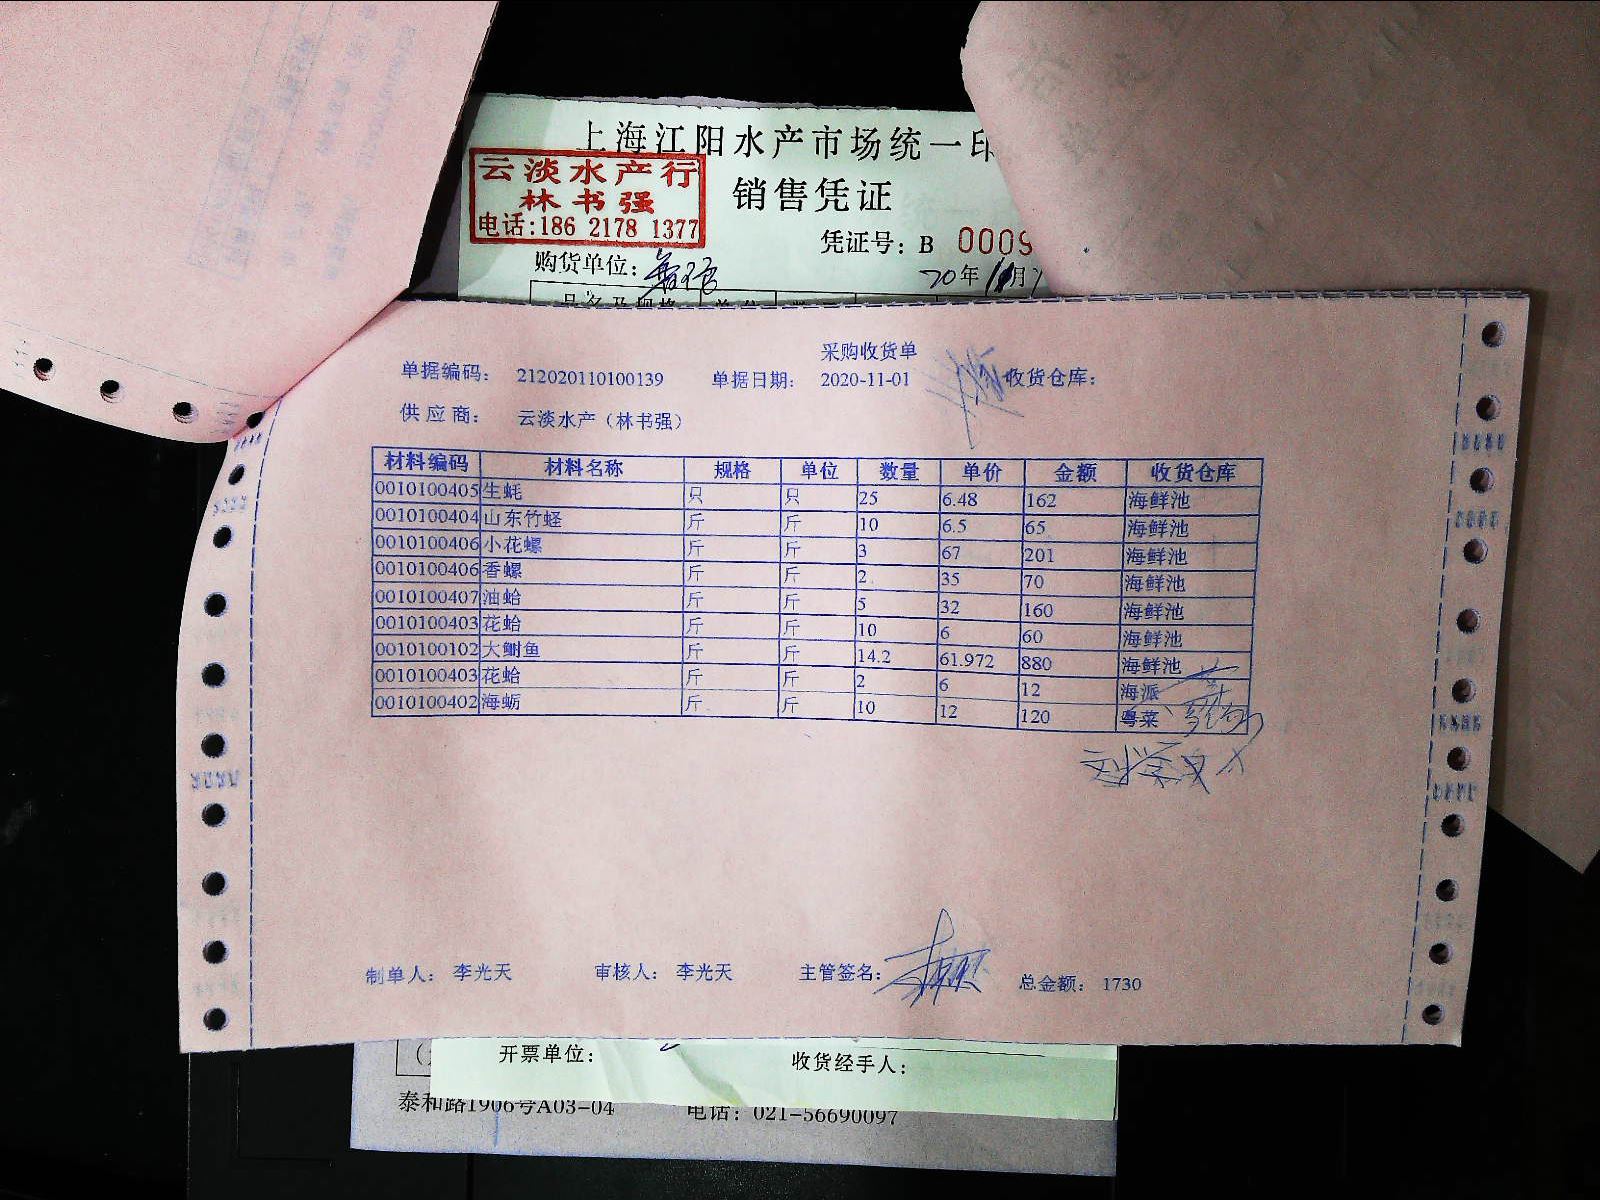 上海江阳水产市场统一印
云淡水产行
林书强
电话:186 2178 1377
销售凭证
凭证号: B 0009
购货单位:
20年11月
采购收货单
单据编码: 212020110100139 单据日期: 2020-11-01 收货仓库:
供应商: 云淡水产（林书强）
材料编码 材料名称 规格 单位 数量 单价 金额 收货仓库
0010100405 生蚝 只 只 25 6.48 162 海鲜池
0010100404 山东竹蛏 斤 斤 10 6.5 65 海鲜池
0010100406 小花螺 斤 斤 3 67 201 海鲜池
0010100406 香螺 斤 斤 2 35 70 海鲜池
0010100407 油蛤 斤 斤 5 32 160 海鲜池
0010100403 花蛤 斤 斤 10 6 60 海鲜池
0010100102 大鲥鱼 斤 斤 14.2 61.972 880 海鲜池
0010100403 花蛤 斤 斤 2 6 12 海派
0010100402 海蛎 斤 斤 10 12 120 粤菜
制单人: 李光天 审核人: 李光天 主管签名: 总金额: 1730
开票单位: 收货经手人:
泰和路1906号A03-04 电话: 021-56690097